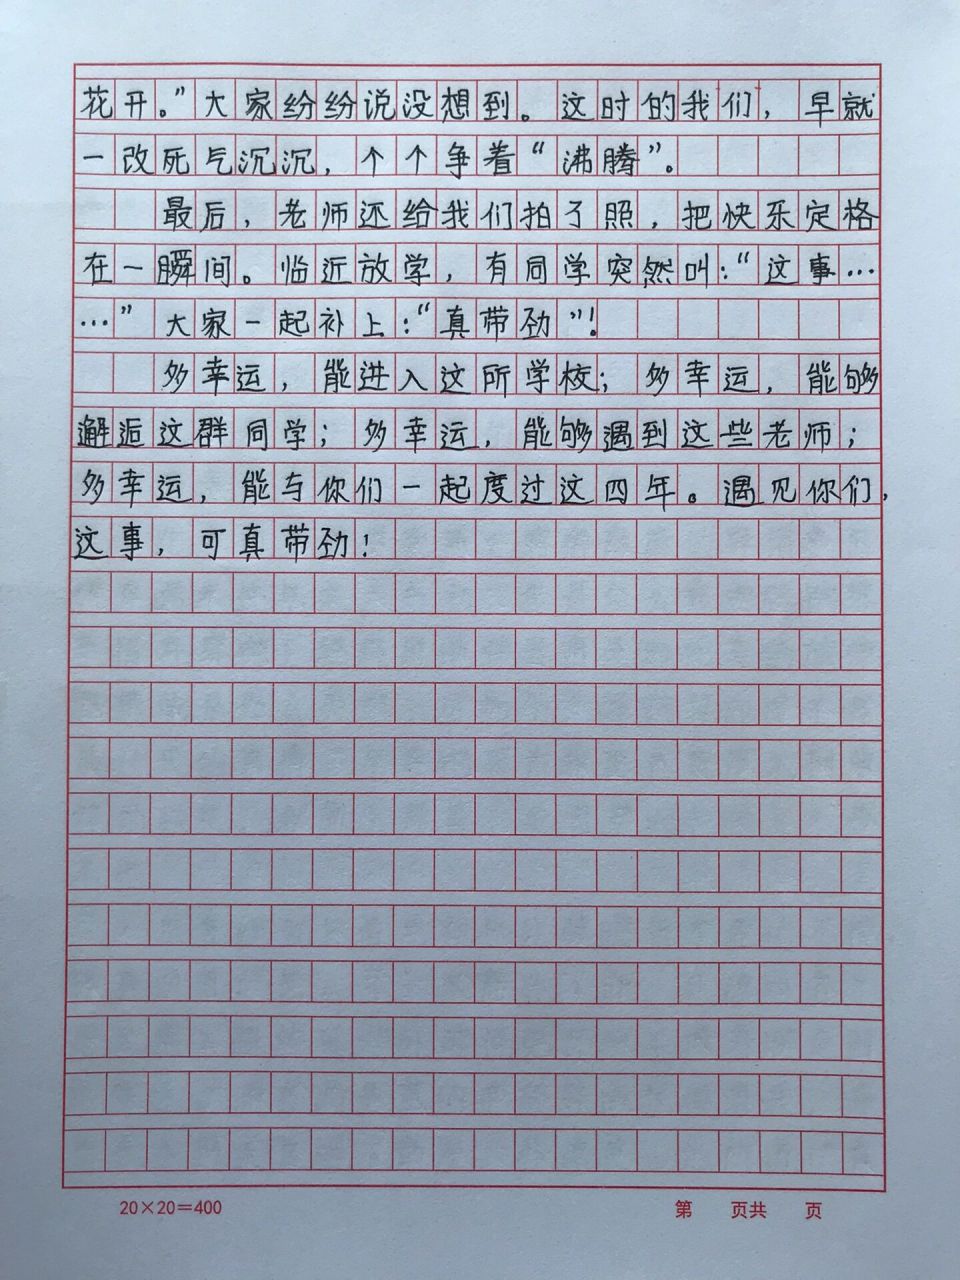 花开。”大家纷纷说没想到。这时的我们，早就
一改死气沉沉，个个争着“沸腾”。
最后，老师还给我们拍了照，把快乐定格
在一瞬间。临近放学，有同学突然叫：“这事…
…”大家一起补上：“真带劲”！
多幸运，能进入这所学校；多幸运，能够
邂逅这群同学；多幸运，能够遇到这些老师；
多幸运，能与你们一起度过这四年。遇见你们，
这事，可真带劲！
20×20=400 第 页共 页